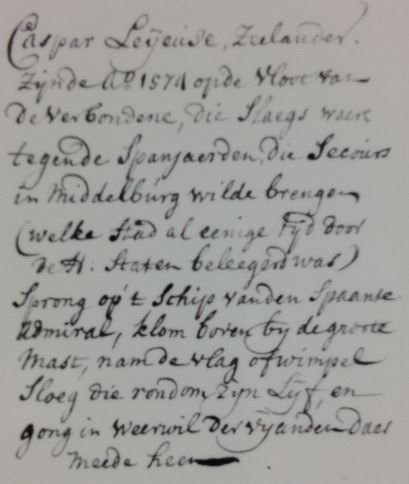 Caspar Leijense, Zeelander.
Zijnde Aº 1574 op de Vloot van
de Verbondene, die Slaegs waere
tegende Spanjaerden, die Secours
in Middelburg wilde brengen
(welke Stad al eenige Tyd door
de H: Staten beleegerd was)
Sprong op't Schip vanden Spaanse
admiral, klom boven by de groote
Mast, nam de vlag of wimpel
Sloeg die rondom zyn Lyf, en
gong in weerwil der vyanden daer
meede heen